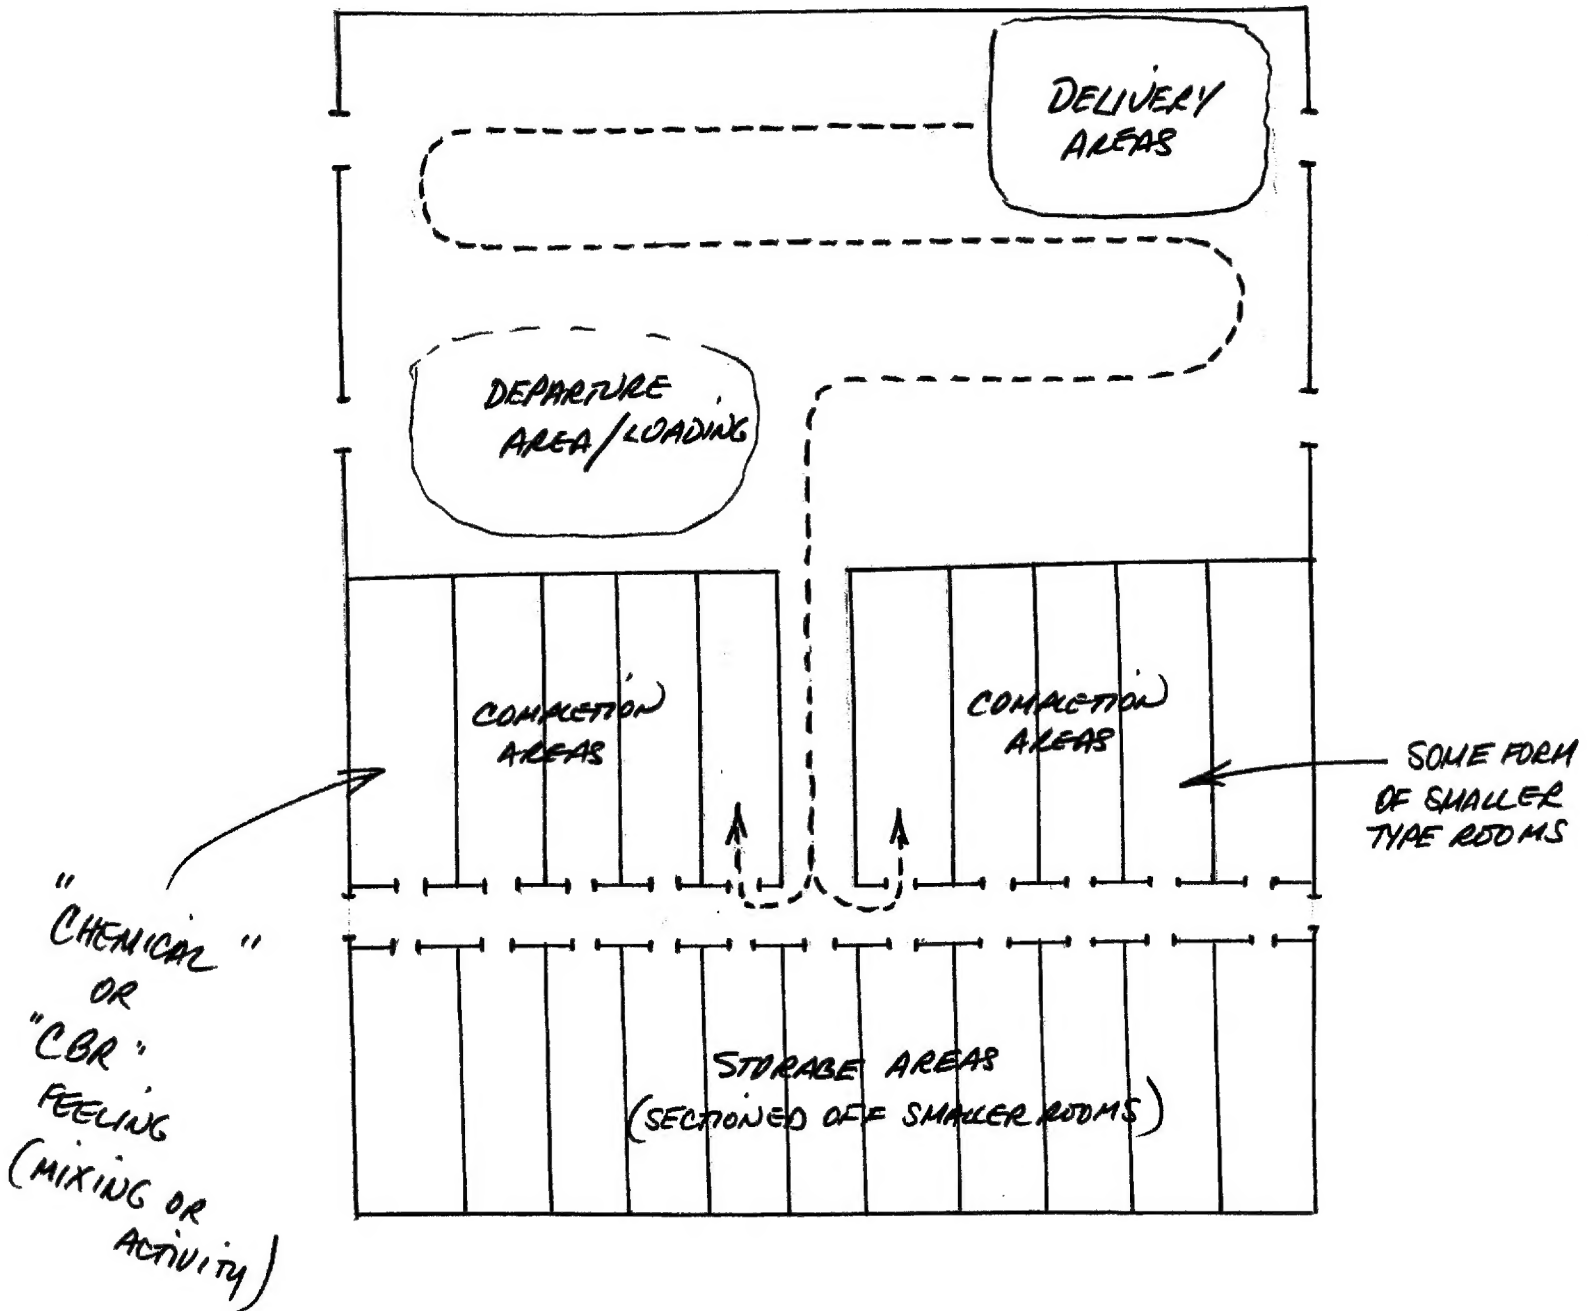 DELIVERY
AREAS
DEPARTURE
AREA/LOADING
COMPLETION
AREAS
COMPLETION
AREAS
SOME FORM
OF SMALLER
TYPE ROOMS
"CHEMICAL"
OR
"CBR"
FEELING
(MIXING OR
ACTIVITY)
STORAGE AREAS
(SECTIONED OFF SMALLER ROOMS)